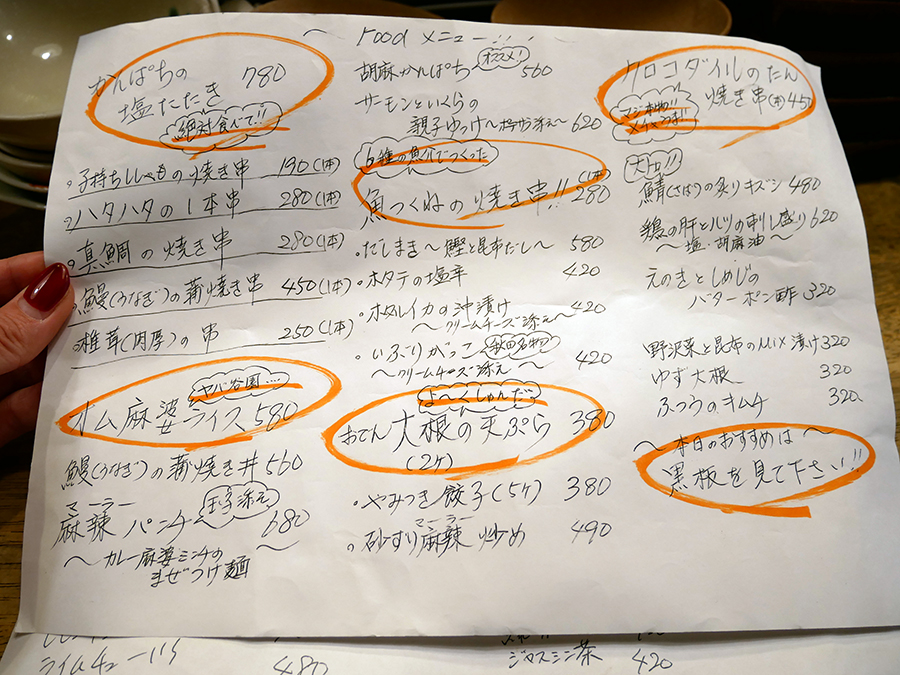 ～ Food メニュー!!
かんぱちの
塩たたき 780
絶対食べて!!
・子持ちししゃもの焼き串 190(1本)
・ハタハタの1本串 280(1本)
・真鯛の焼き串 280(1本)
・鰻(うなぎ)の蒲焼き串 450(1本)
・椎茸(肉厚)の串 250(1本)
ヤバ谷園…
オム麻婆ライス 580
鰻(うなぎ)の蒲焼き丼 560
マーラー
麻辣パンチ 玉子添え 680
～カレー麻婆ミンチの
まぜつけ麺～
胡麻かんぱち オススメ! 560
サーモンといくらの
親子ゆっけ～ 620
6種の魚介でつくった
魚つくねの焼き串!! (1本) 280
・だしまき～鰹と昆布だし～ 580
・ホタテの塩辛 420
・ホタルイカの沖漬け 420
～クリームチーズ添え～
・いぶりがっこ 秋田名物 420
～クリームチーズ添え～
よ～くしゅんだ
おでん大根の天ぷら 380
(2ヶ)
・やみつき餃子(5ヶ) 380
マーラー
・砂ずり麻辣炒め 490
クロコダイルのたん
焼き串(1本) 450
マジ本物!!
メチャうま!!
大山!!
鯖(さば)の炙りキズシ 480
鶏の肝とハツの刺し盛り 620
～塩・胡麻油～
えのきとしめじの
バターポン酢 320
野沢菜と昆布の漬け 320
ゆず大根 320
ふつうのキムチ 320
～本日のおすすめは～
黒板を見て下さい!!
ライムチューハイ 480
ジャスミン茶 420